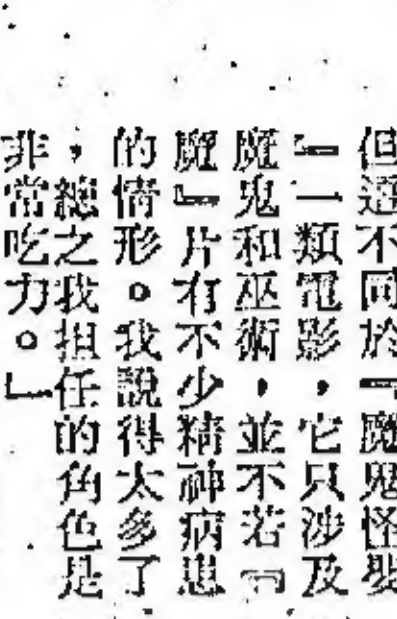 但這不同於『魔鬼怪嬰
』一類電影，它只涉及
魔鬼和巫術，並不若『
魔』片有不少精神病患
的情形。我說得太多了
，總之我担任的角色是
非常吃力。」